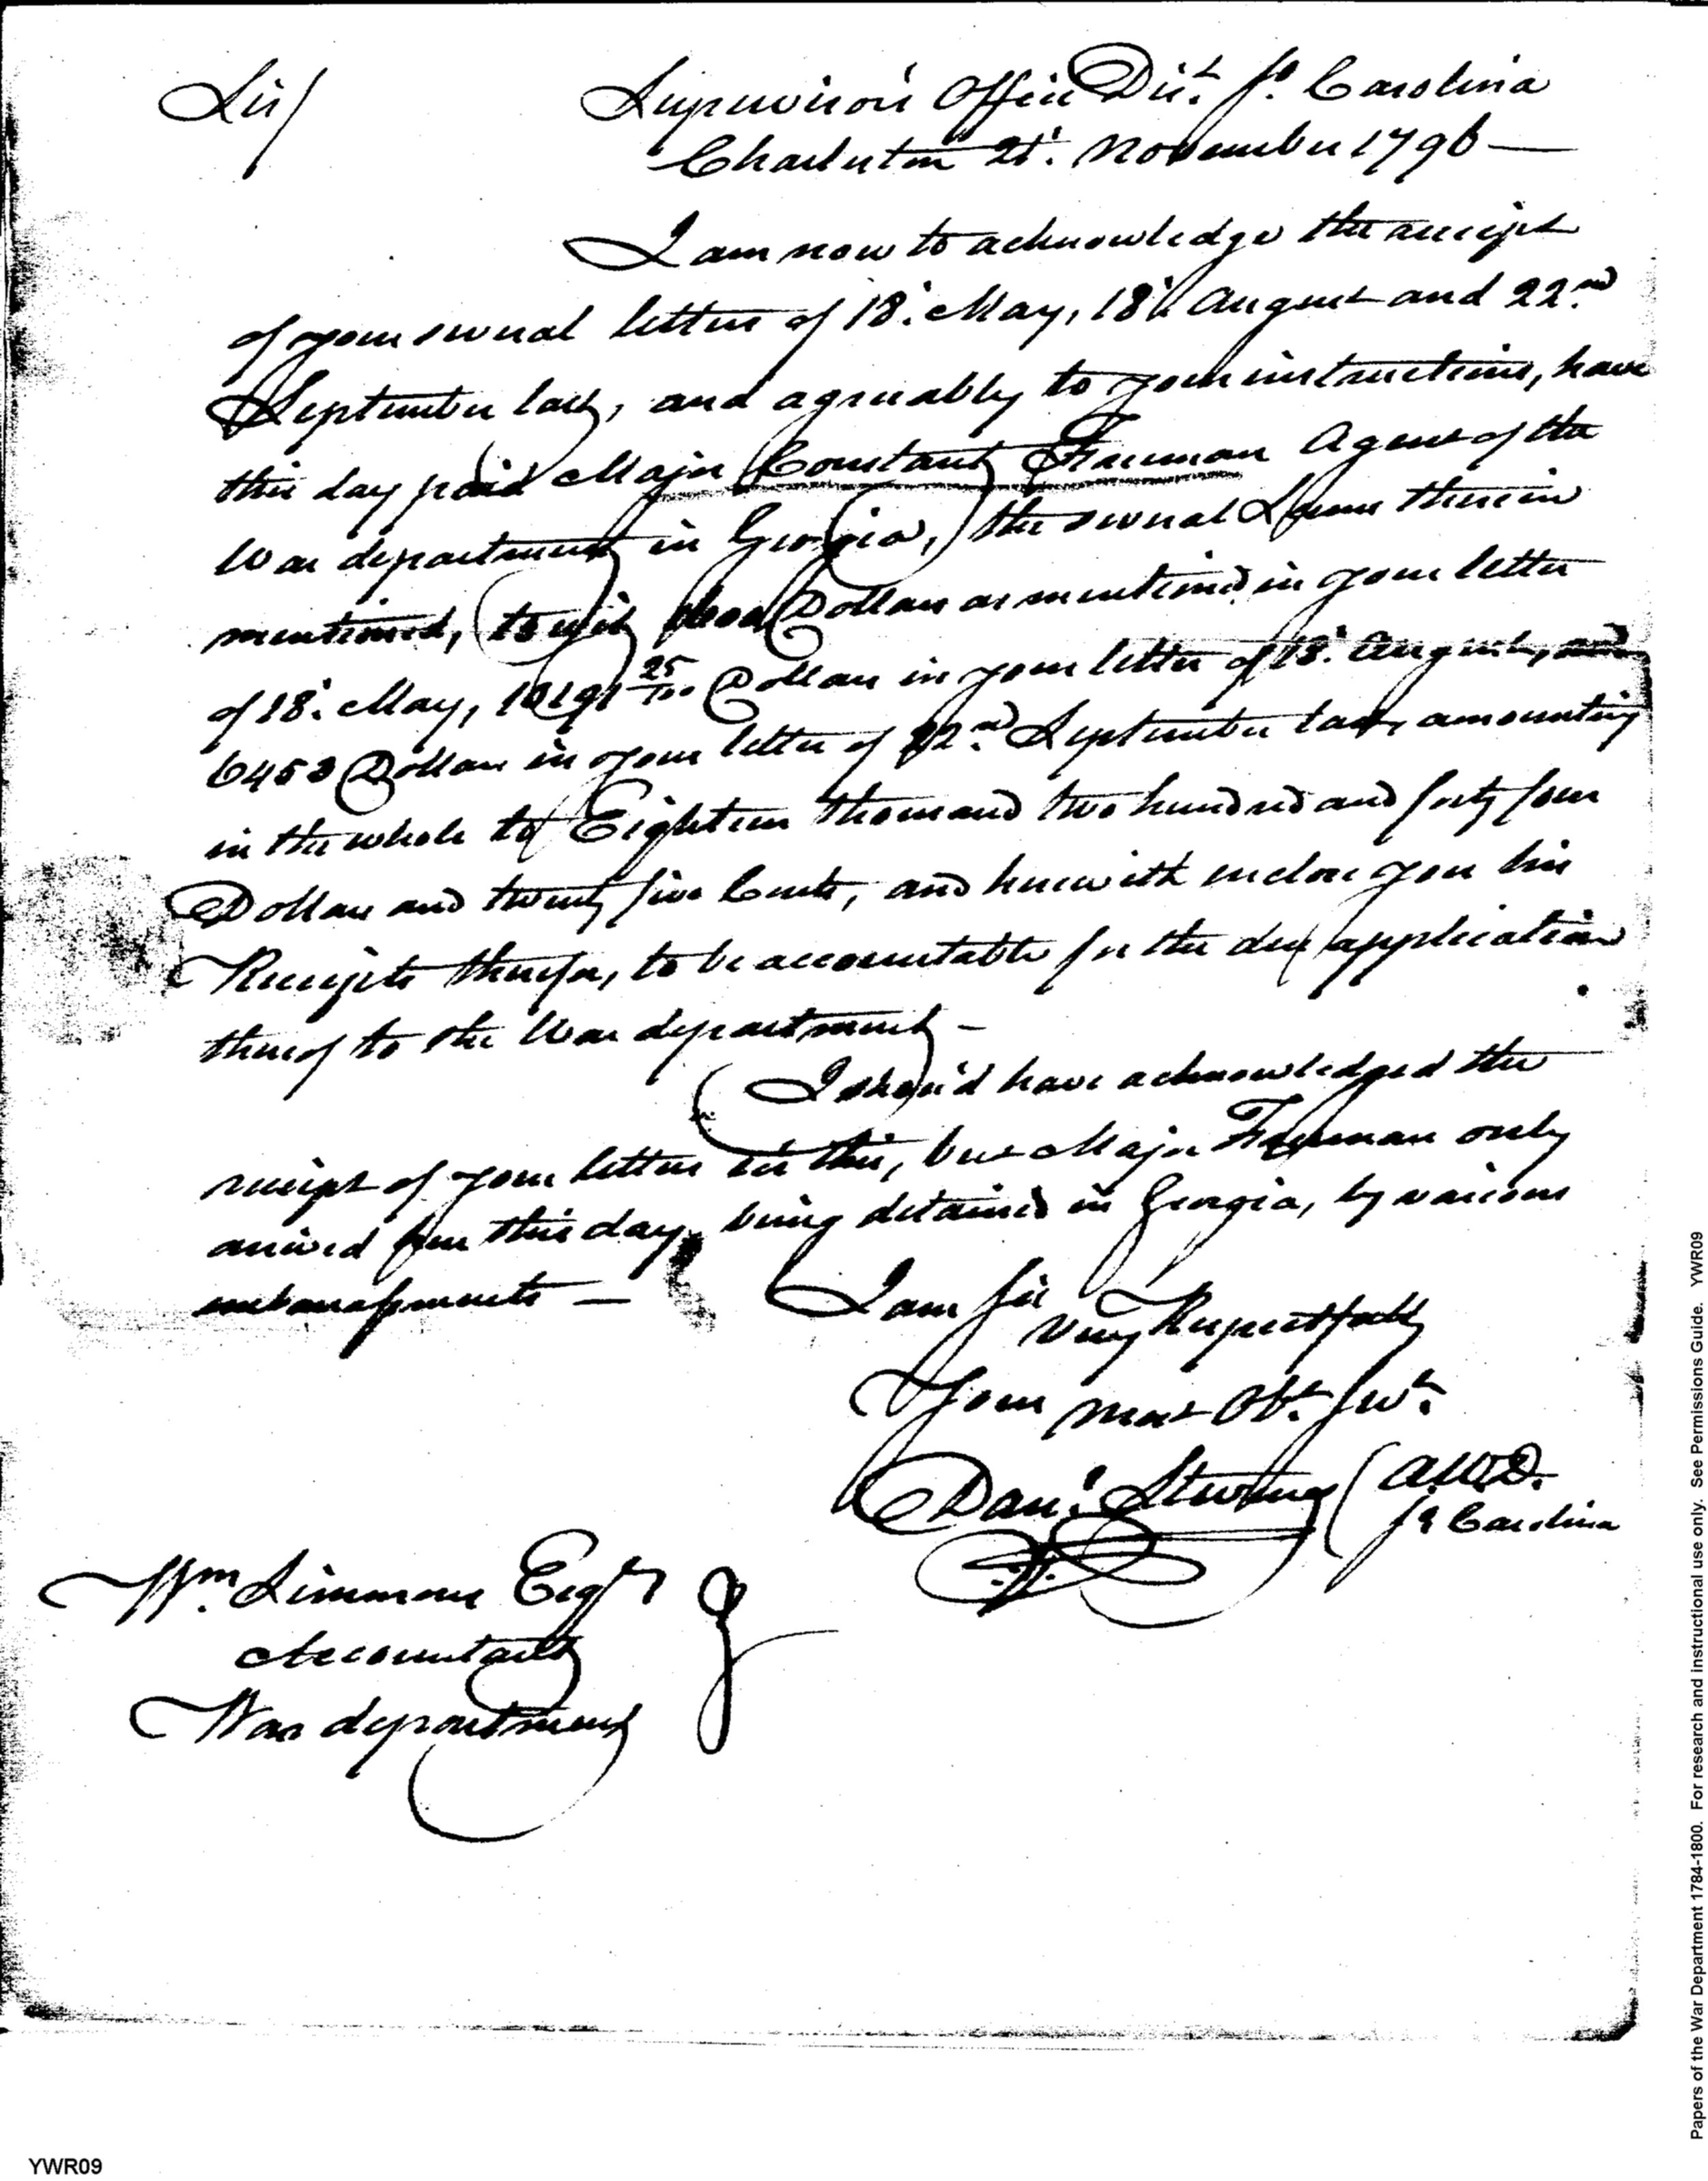 Sir/ Supervisor's Office Dist. So. Carolina
Charleston 21t. November 1796 —
I am now to acknowledge the receipt
of your several letters of 18t. May, 18th August and 22nd.
September last, and agreeably to your instructions, have
this day paid Major Constant Freeman Agent of the
War department in Georgia, the several Sums therein
mentioned, to wit 1600 Dollars as mentioned in your letter
of 18t. May, 10191 25/100 Dollars in your letter of 18t. August, and
6453 Dollars in your letter of 22nd. September last, amounting
in the whole to Eighteen thousand two hundred and forty four
Dollars and twenty five Cents, and herewith enclose you his
Receipts therefor, to be accountable for the due application
thereof to the War department —
I shou'd have acknowledged the
receipt of your letters ere this, but Major Freeman only
arrived here this day, being detained in Georgia, by various
embarassments —
I am Sir
very Respectfully
Your most Obt. Servt.
Danl. Stevens
So. Carolina
Wm. Simmons Esqr
Accountant
War department
YWR09
Papers of the War Department 1784-1800. For research and instructional use only. See Permissions Guide. YWR09